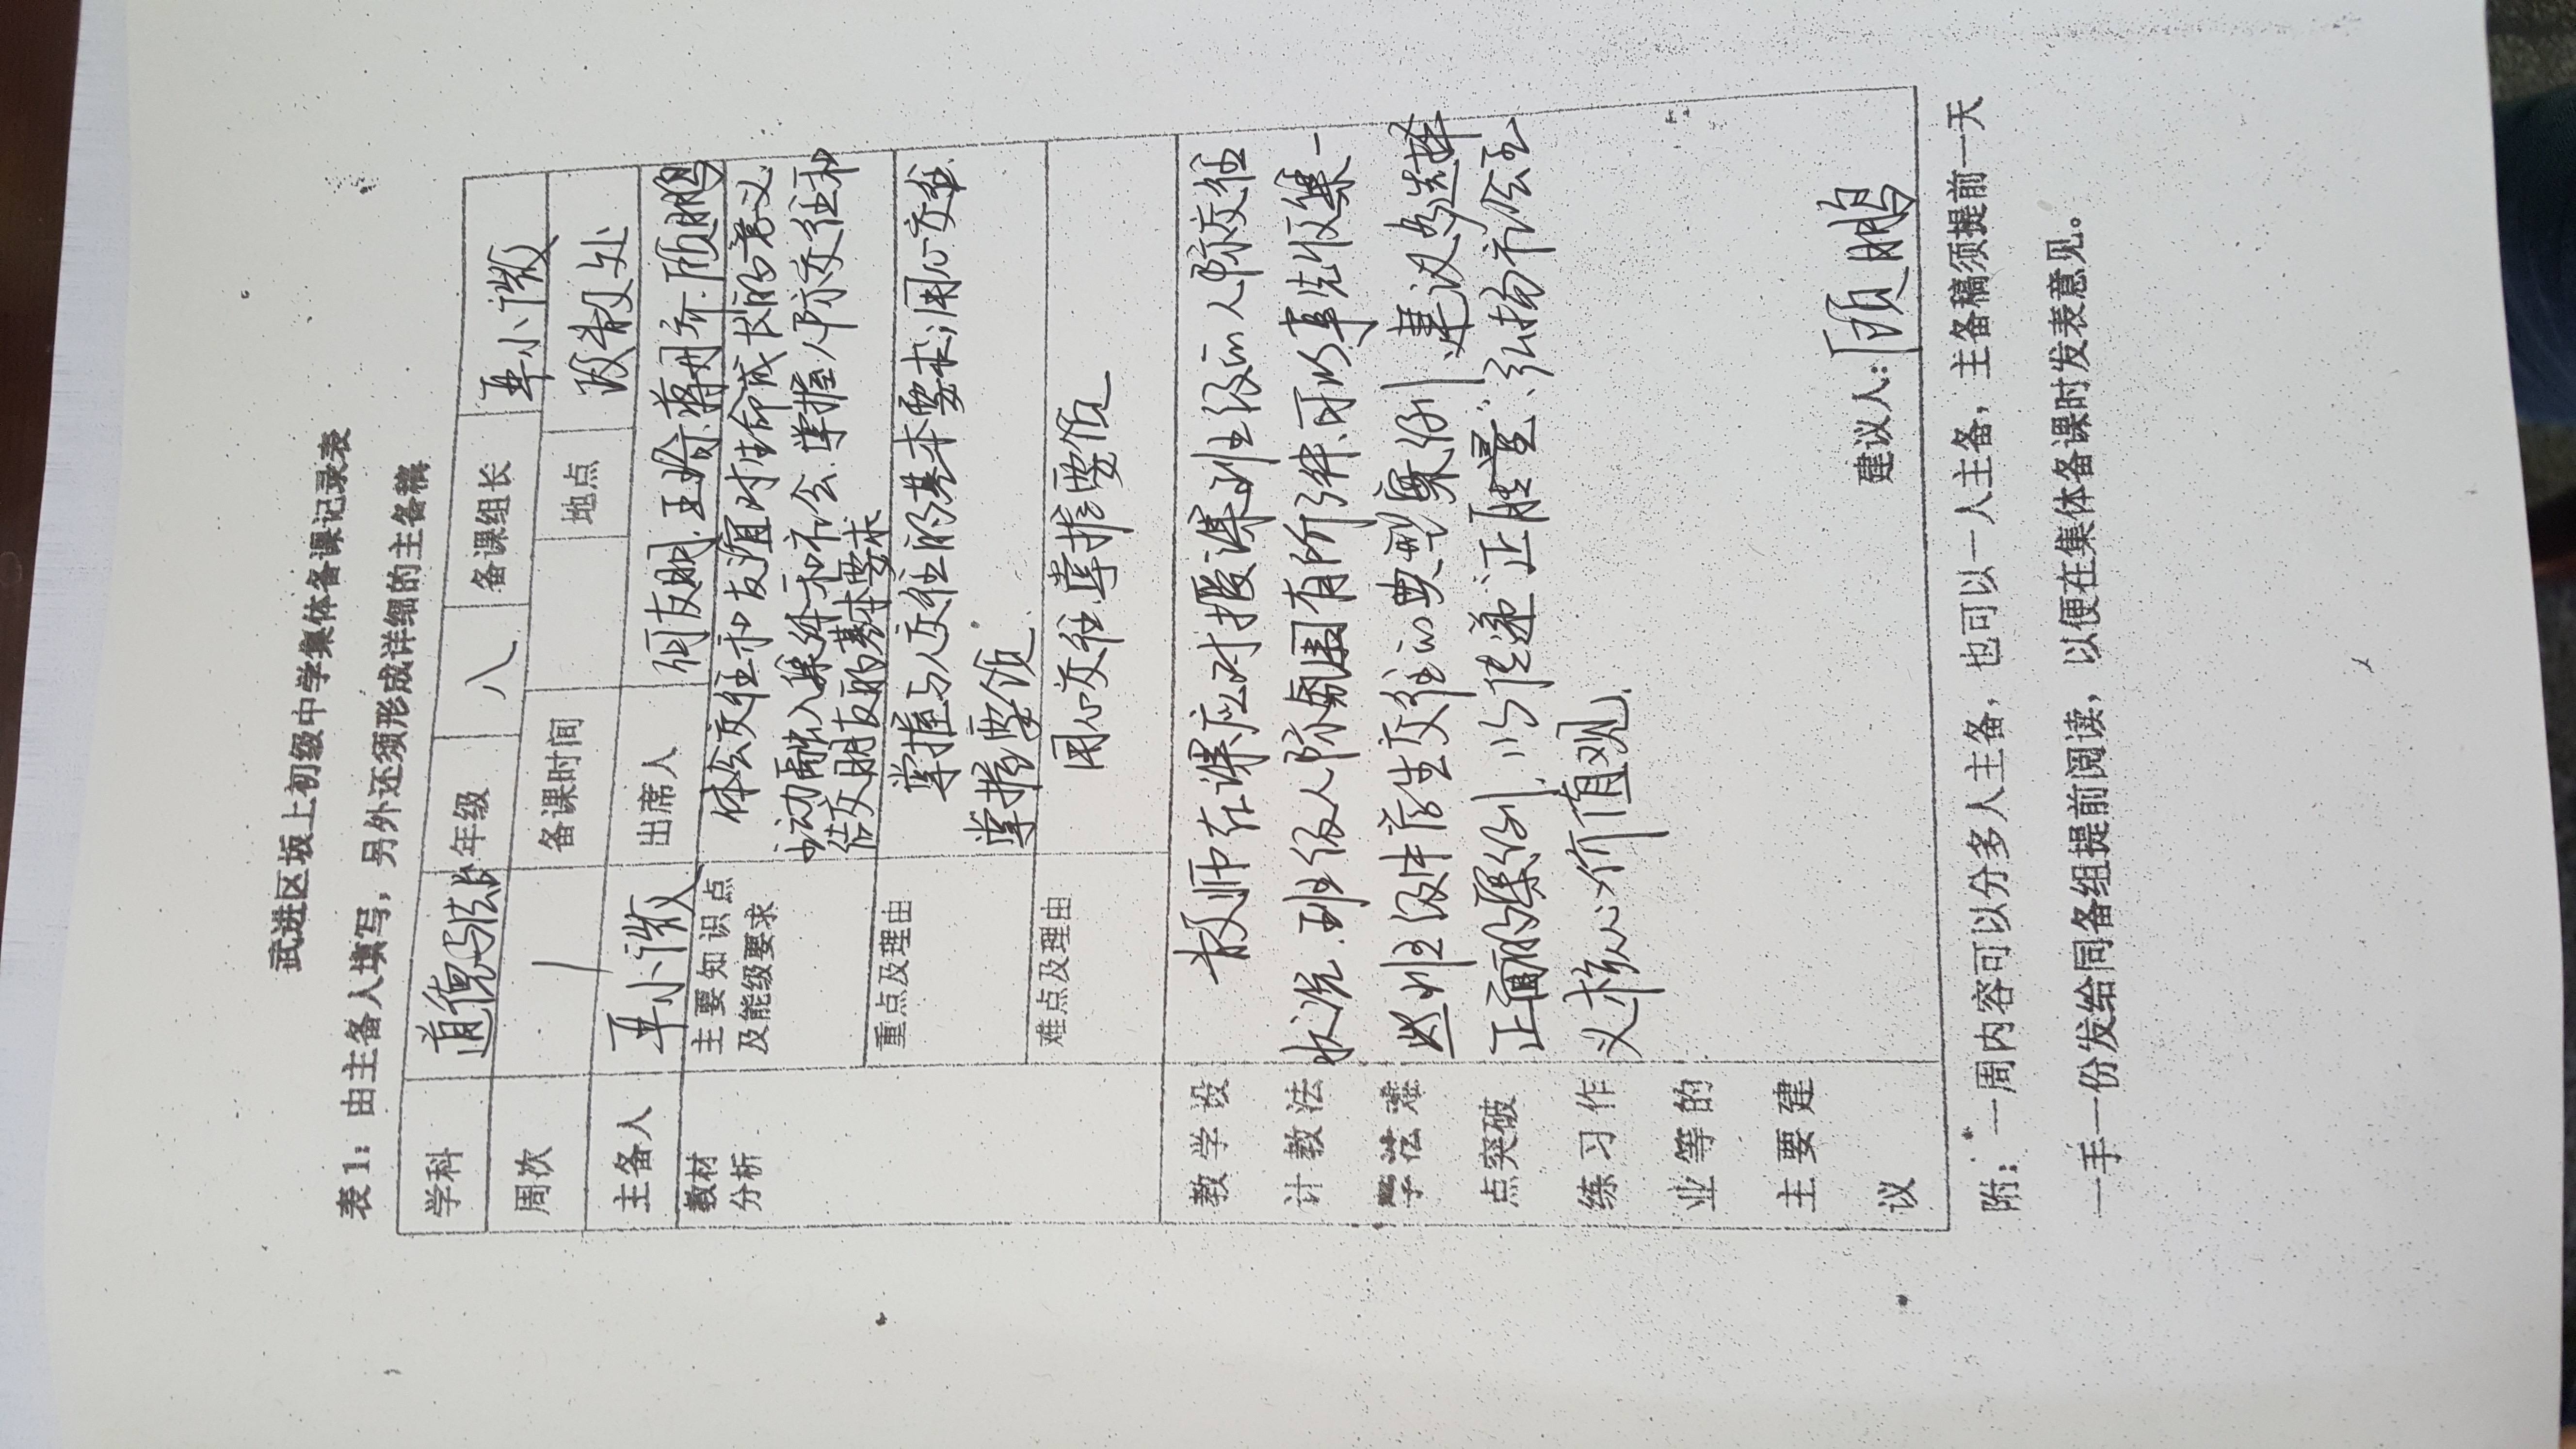 武进区坂上初级中学集体备课记录表
表1：由主备人填写，另外还须形成详细的主备稿
学科 道德与法 年级 八 备课组长 小微
周次 1 备课时间 地点 政教处
主备人 小微 出席人 友明、王玲、蒋丹齐、顾鹏
教材分析
主要知识点及能级要求
体会交往和友谊对生命成长的意义
主动融入集体和社会、掌握人际交往和
结交朋友的基本要求
重点及理由
掌握与人交往的基本要求；用心交往
掌握要领
难点及理由
用心交往、掌握要领
教学设
计教法
学法难
点突破
练习作
业等的
主要建
议
教师在课应对授课班级的人际交往
状况、班级人际氛围有所了解、可以事先收集一
些班级中产生交往的典型案例、建议多选择
正面的案例、以传递“正能量”、弘扬社会主
义核心价值观。
建议人：顾鹏
附：一周内容可以分多人主备，也可以一人主备，主备稿须提前一天
一手一份发给同备组提前阅读，以便在集体备课时发表意见。